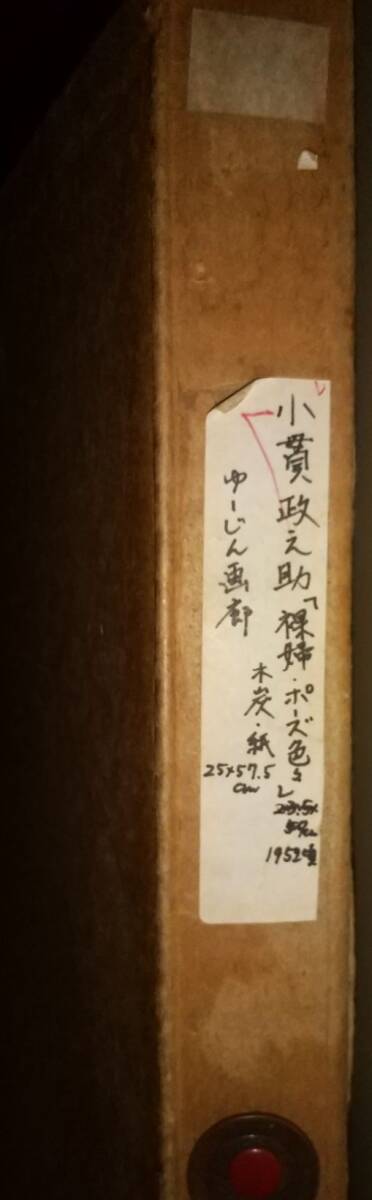 小貫政之助「裸婦・ポーズ色々」
23.5×
59cm
1952頃
木炭・紙
25×57.5
cm
ゆーじん画廊